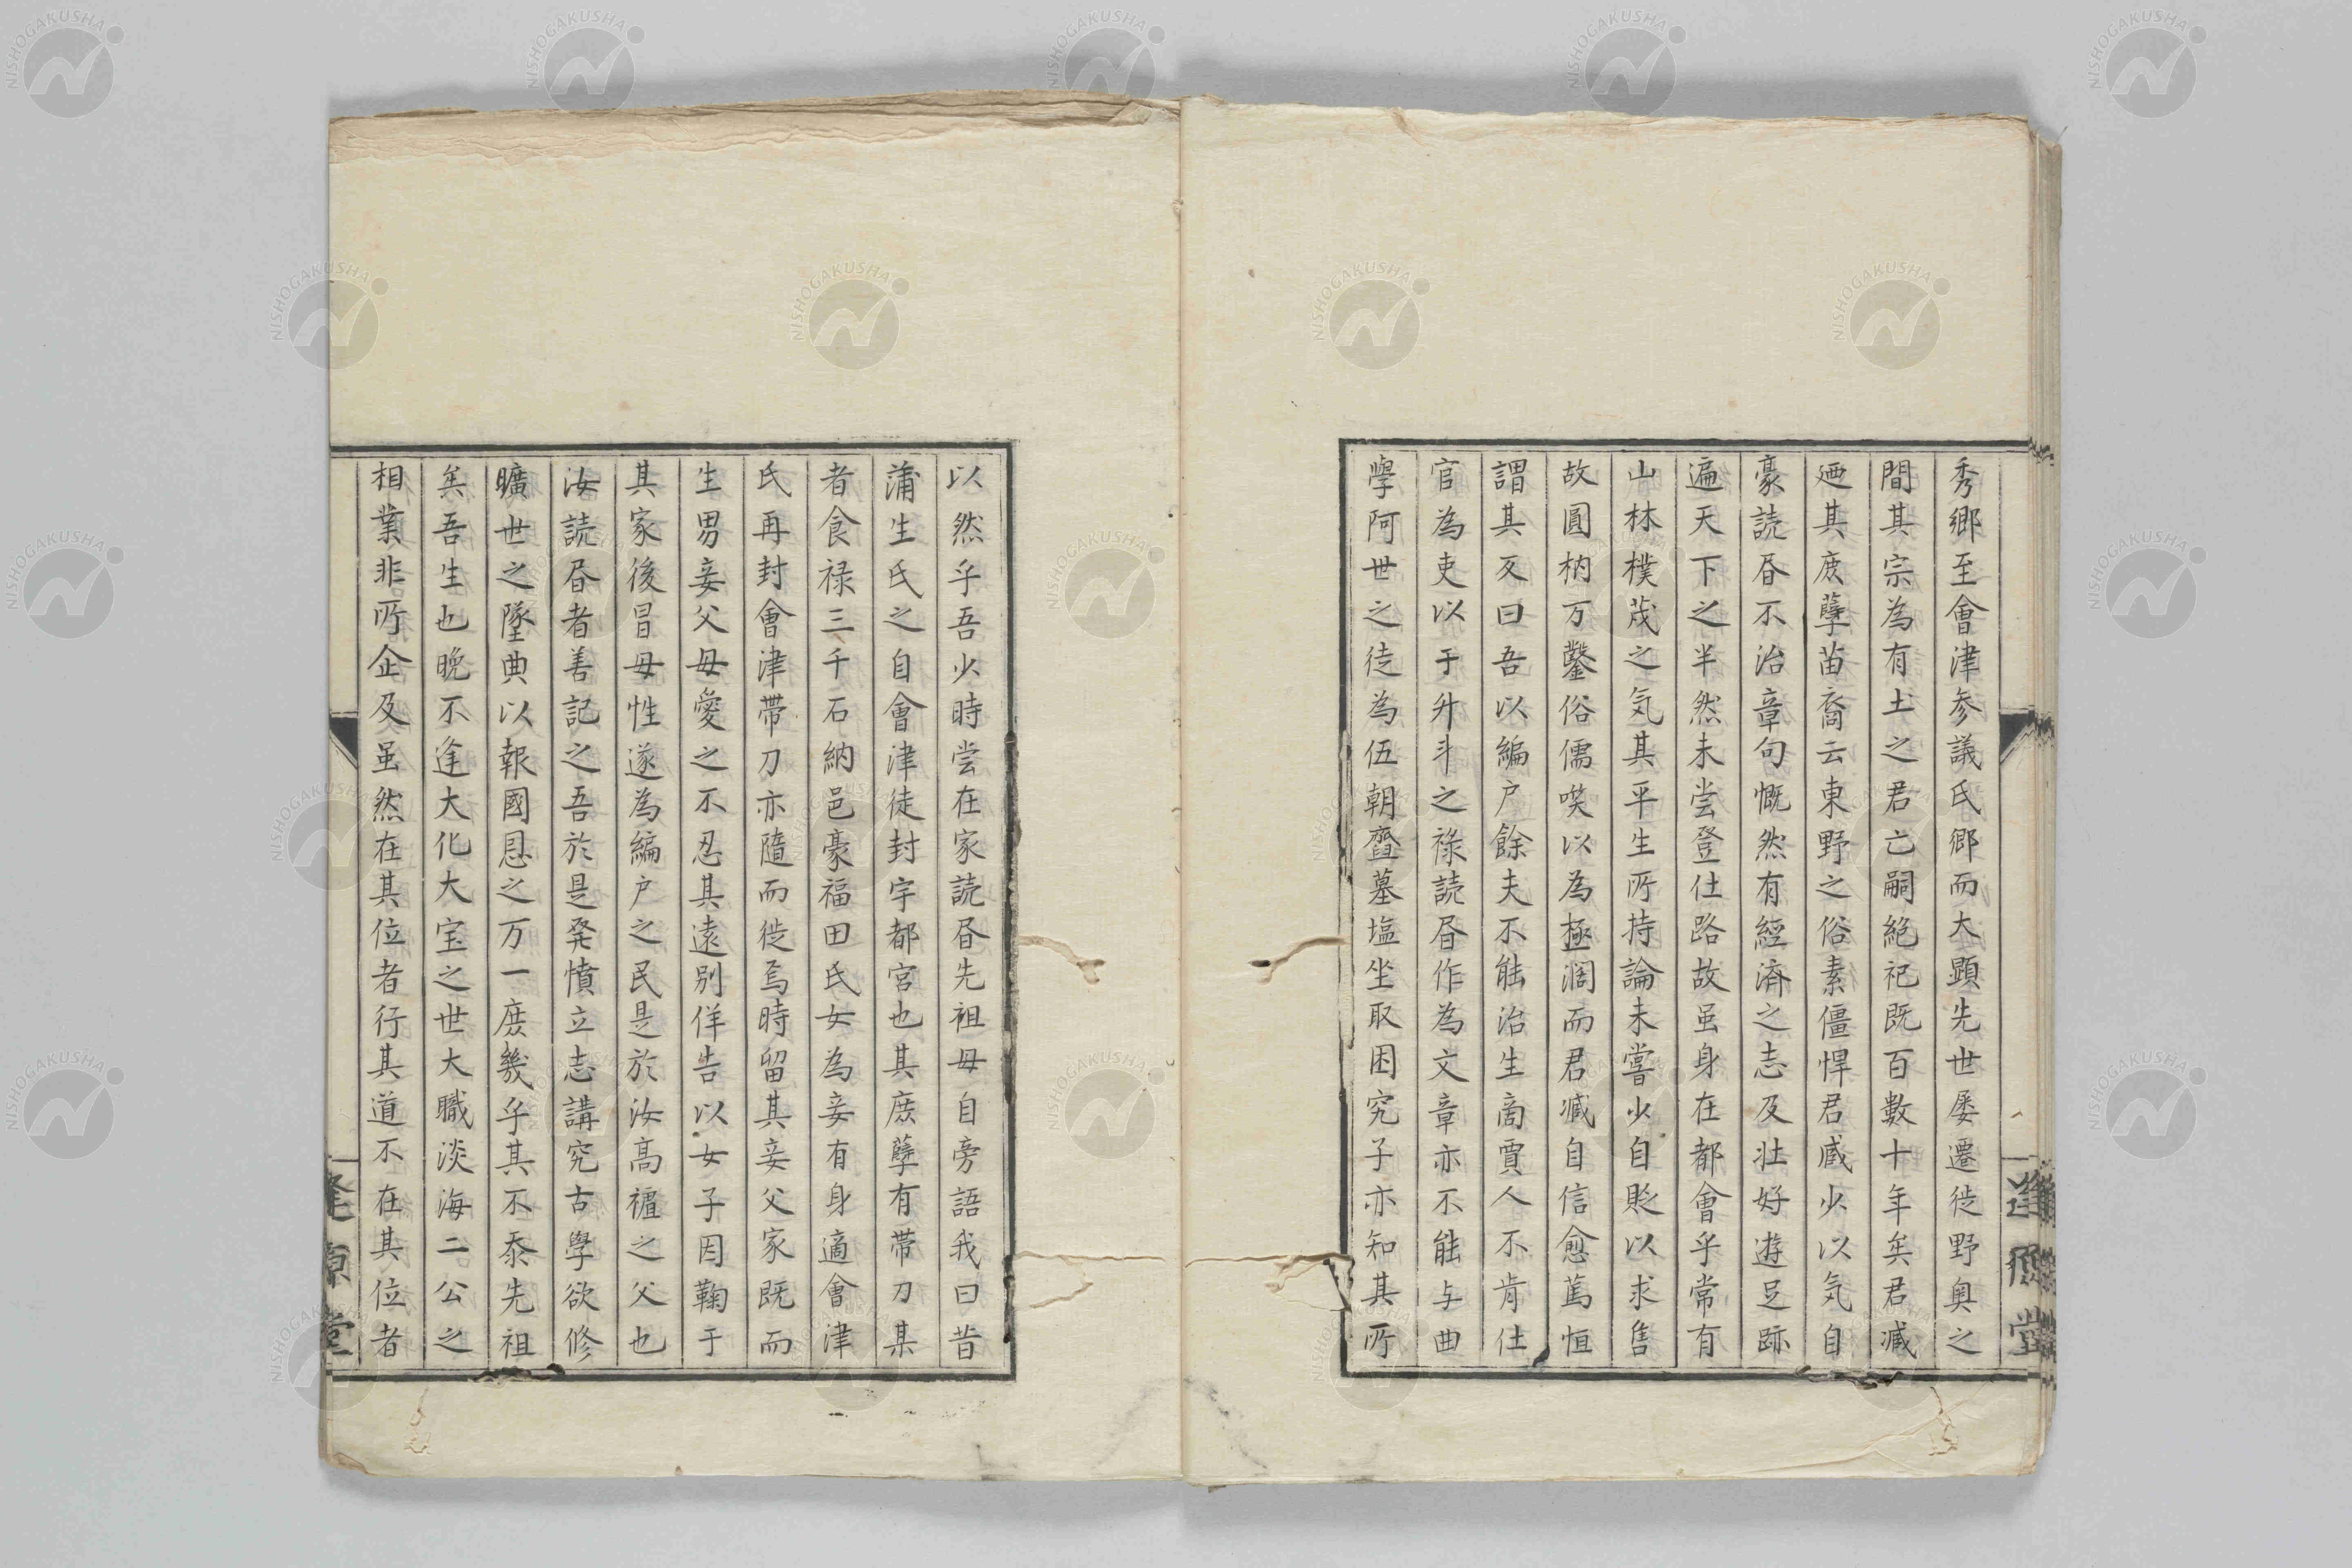 秀郷至會津参議氏郷而大顕先世屡遷徙野奥之
間其宗為有土之君亡嗣絶祀既百數十年矣君臧
廼其庶孽苗裔云東野之俗素僵悍君臧少以気自
豪読昏不治章句慨然有經済之志及壮好遊足跡
遍天下之半然未尝登仕路故虽身在都會乎常有
山林樸茂之気其平生所持論未嘗少自貶以求售
故圓枘方鑿俗儒唉以為極濶而君臧自信愈篤恒
謂其友曰吾以編户餘夫不能治生商賈人不肯仕
官為吏以于升斗之禄読昏作為文章亦不能与曲
學阿世之徒為伍朝齏墓塩坐取困究子亦知其所
以然乎吾少時尝在家読昏先祖母自旁語我曰昔
蒲生氏之自會津徒封宇都宮也其庶孽有帯刀某
者食禄三千石納邑豪福田氏女為妾有身適會津
氏再封會津帯刀亦隨而徙焉時留其妾父家既而
生男妾父母愛之不忍其遠別佯告以女子因鞠于
其家後冒母性遂為編户之民是於汝髙禰之父也
汝読昏者善記之吾於是発憤立志講究古學欲修
曠世之墜典以報國恩之万一庶幾乎其不忝先祖
矣吾生也晩不逢大化大宝之世大職淡海二公之
相業非所企及虽然在其位者行其道不在其位者
逢原堂
逢原堂
NISHOGAKUSHA